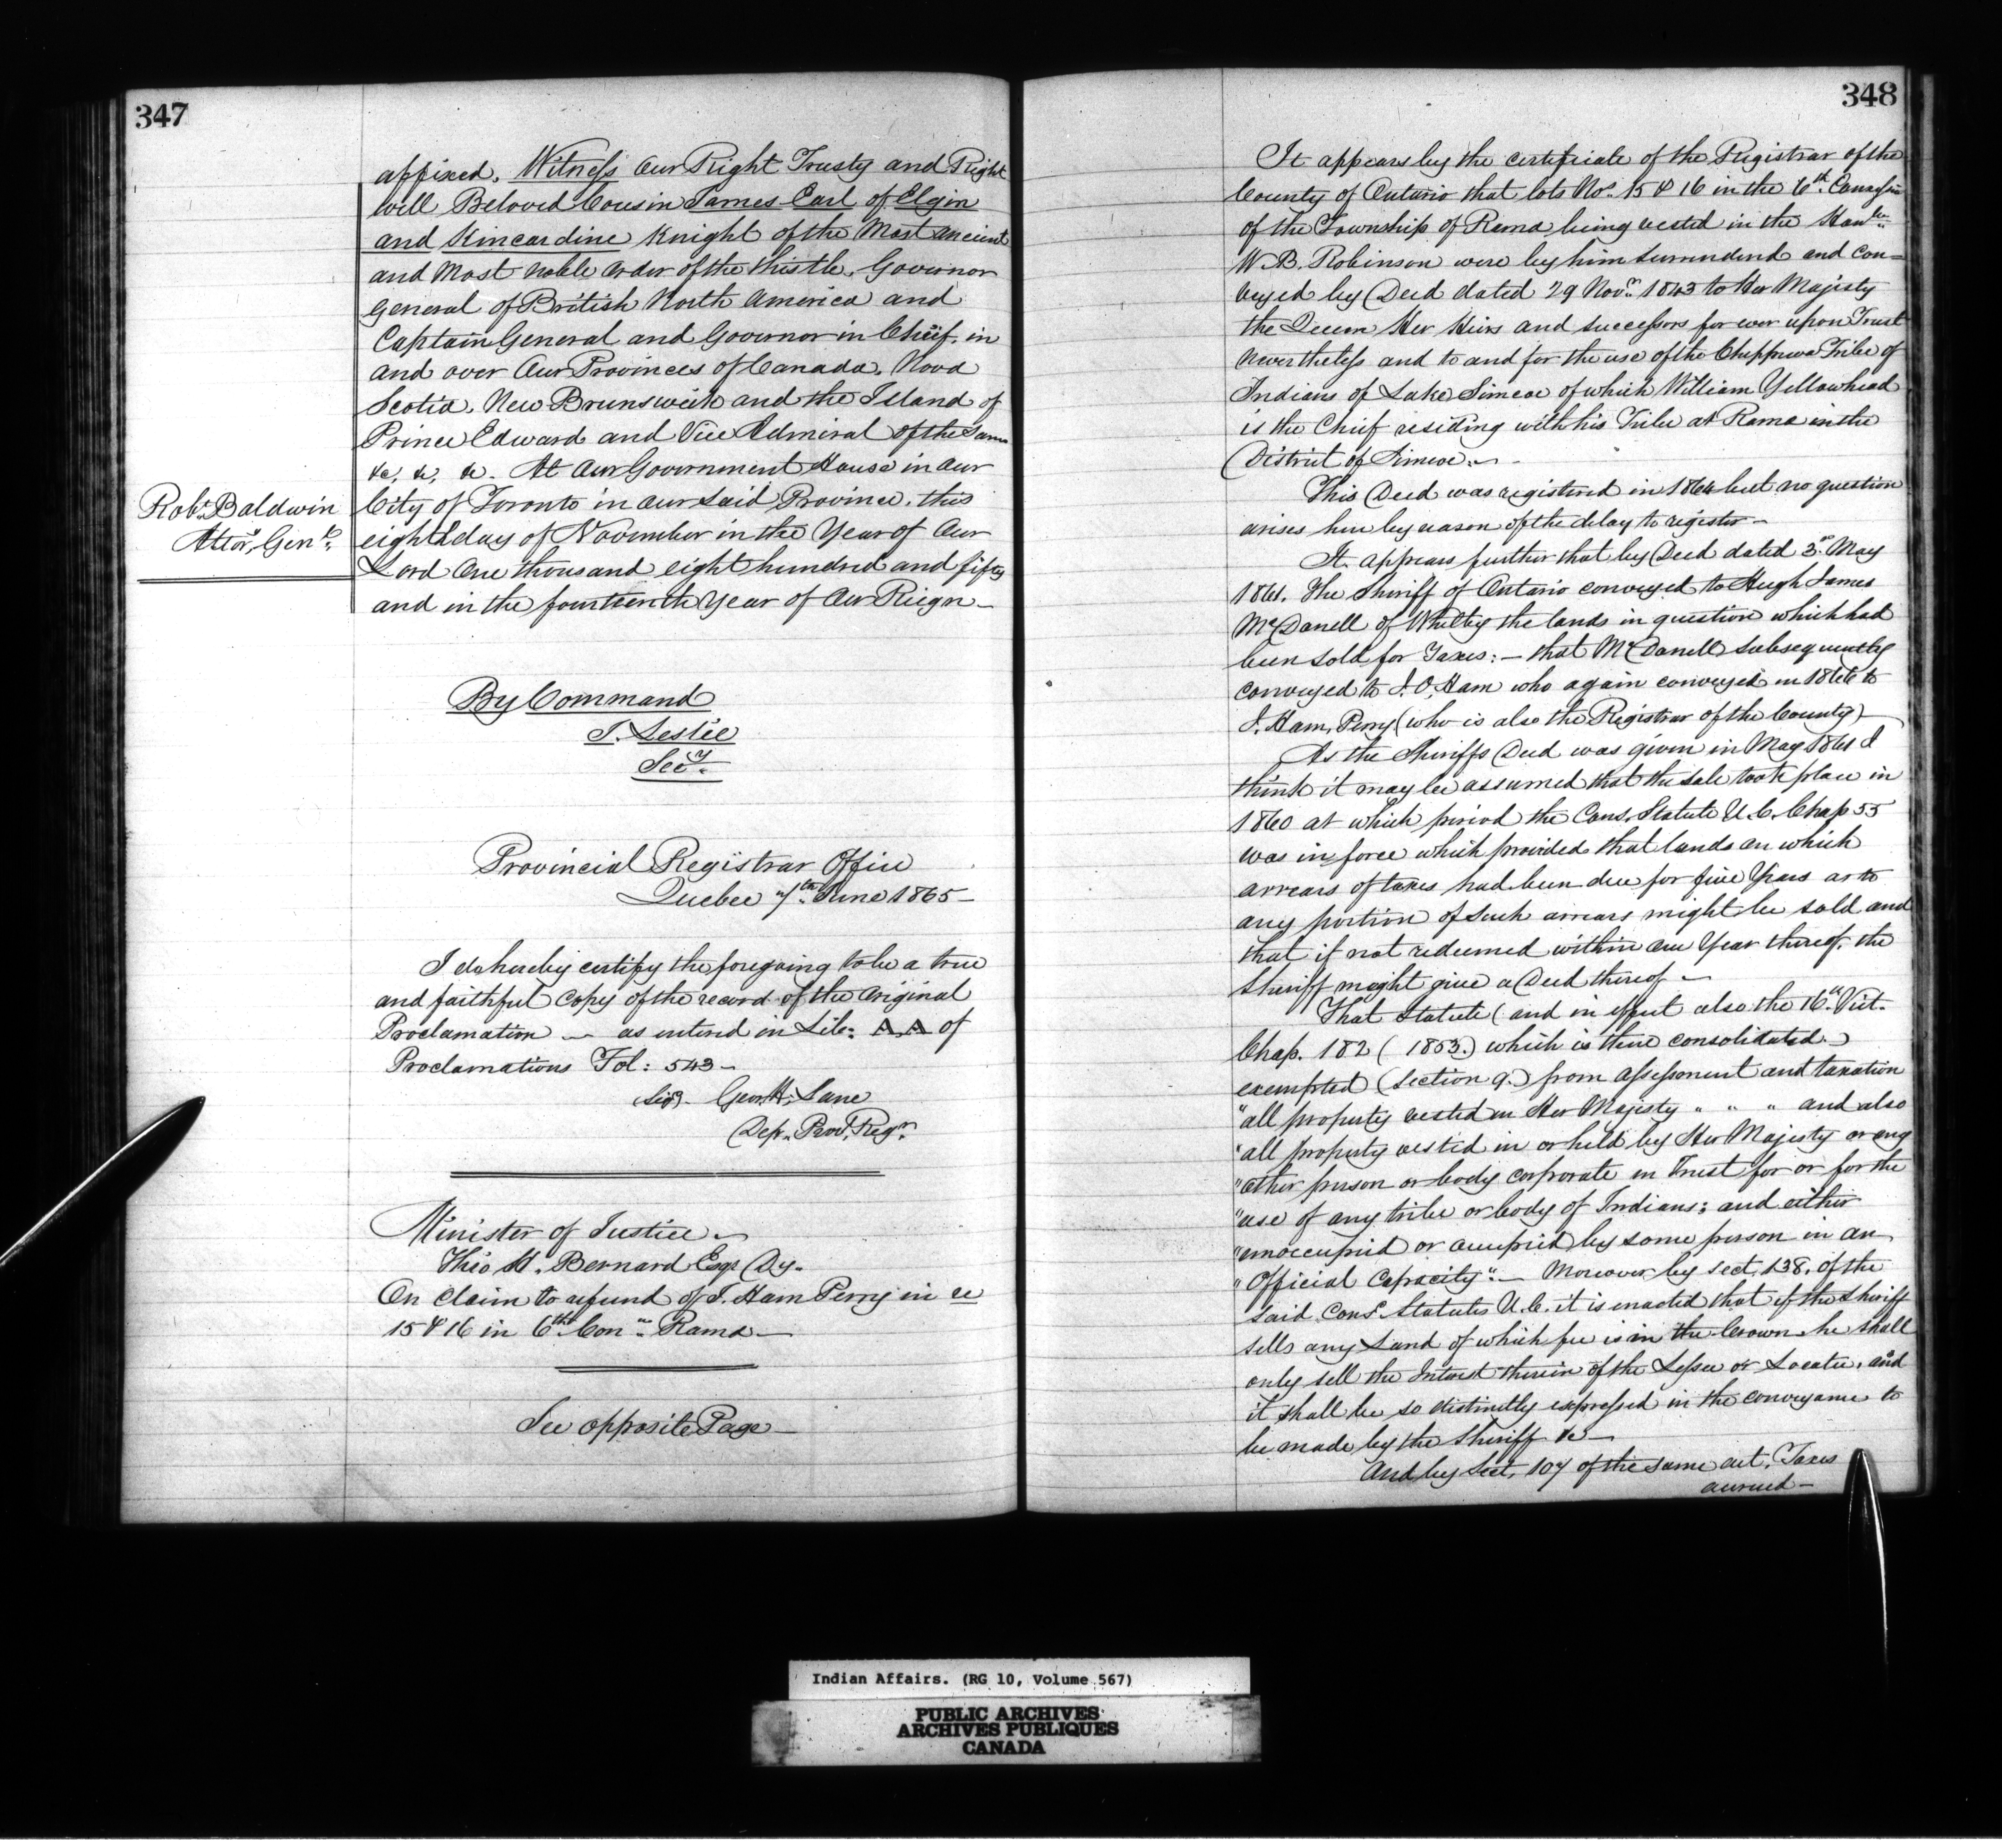 347
affixed. Witness Our Right Trusty and Right
Well Beloved Cousin James Earl of Elgin
and Kincardine Knight of the Most ancient
and Most noble order of the Thistle, Governor
General of British North America and
Captain General and Governor in Chief, in
and over Our Provinces of Canada, Nova
Scotia, New Brunswick and the Island of
Prince Edward and Vice Admiral of the same
&c, &c, &c. At Our Government House in Our
City of Toronto in our said Province, this
eighth day of November in the Year of Our
Lord One thousand eight hundred and fifty
and in the fourteenth Year of Our Reign—
Robt. Baldwin
Attor. Genl.
By Command
J. Leslie
Secy.
Provincial Registrar Office
Quebec 7th June 1865—
I do hereby certify the foregoing to be a true
and faithful Copy of the record of the Original
Proclamation — as entered in Lib: A.A of
Proclamations Fol: 543—
(Sigd) Geo. H. Lane
Dep. Provl. Regr.
Minister of Justice.
Theo H. Bernard Esqr Dy.
On Claim to refund of J. Ham Perry in re
15 & 16 in 6th Conn. Rama—
See opposite Page—
348
It appears by the certificate of the Registrar of the
County of Ontario that lots Nos. 15 & 16 in the 6th Concession
of the Township of Rama being vested in the Honble.
W. B. Robinson were by him surrendered and con=
veyed by Deed dated 29 Novr. 1843 to Her Majesty
the Queen Her Heirs and successors for ever upon Trust
nevertheless and to and for the use of the Chippewa Tribe of
Indians of Lake Simcoe of which William Yellowhead
is the Chief residing with his Tribe at Rama in the
District of Simcoe.—
This Deed was registered in 1864 but no question
arises here by reason of the delay to register—
It appears further that by Deed dated 3d. May
1861. The Sheriff of Ontario conveyed to Hugh James
McDonell of Whitby the lands in question which had
been sold for Taxes:— that McDonell subsequently
conveyed to J. O. Ham who again conveyed in 1866 to
J. Ham Perry (who is also the Registrar of the County)—
As the Sheriffs Deed was given in May 1861 I
think it may be assumed that the sale took place in
1860 at which period the Cons. Statute U.C. Chap 55
was in force which provided that lands on which
arrears of taxes had been due for five Years as to
any portion of such arrears might be sold and
that if not redeemed within one Year thereof, the
Sheriff might give a Deed thereof—
That Statute (and in effect also the 16th. Vict.
Chap. 182 (1853.) which is there consolidated.)
exempted (section 9.) from assessment and taxation
"all property vested in Her Majesty " " " and also
"all property vested in or held by Her Majesty or any
"other person or body corporate in Trust for or for the
"use of any tribe or body of Indians; and either
"unoccupied or occupied by some person in an
"Official Capacity".— Moreover by sect. 138. of the
said Cons. Statutes U.C. it is enacted that if the Sheriff
sells any Land of which fee is in the Crown he shall
only sell the Interest therein of the Lessee or Locatee, and
it shall be so distinctly expressed in the conveyance to
be made by the Sheriff &c—
And by Sect. 107 of the same act. Taxes
accrued—
Indian Affairs. (RG 10, Volume 567)
PUBLIC ARCHIVES
ARCHIVES PUBLIQUES
CANADA